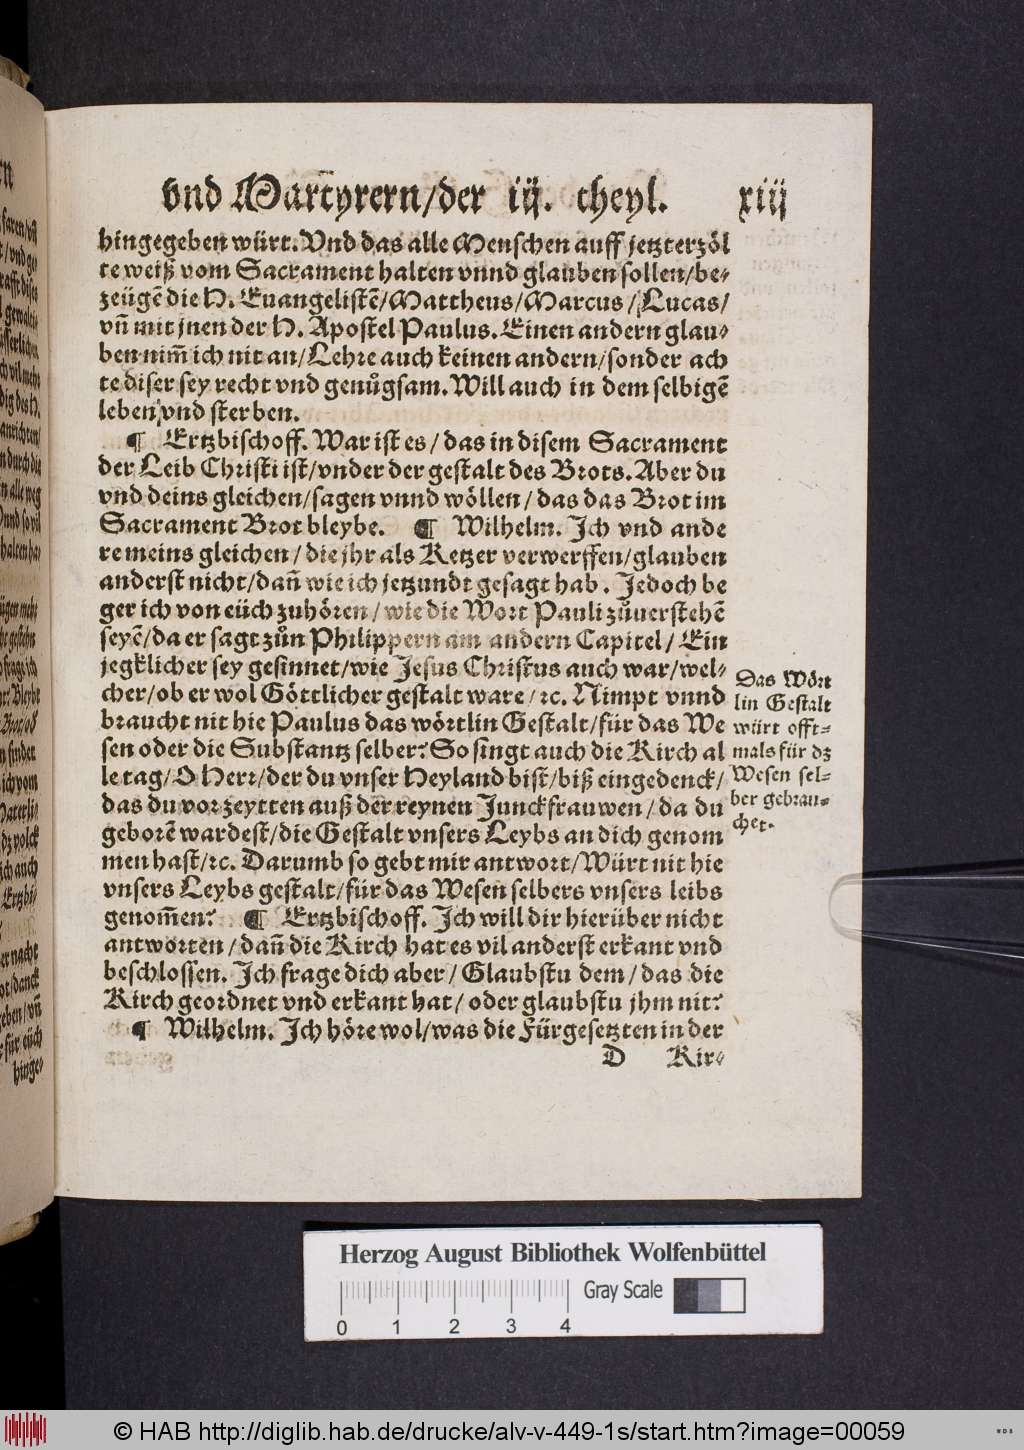 vnd Martyrern/der iij. theyl. xiij
hingegeben würt. Vnd das alle Menschen auff jetzterzöl
te weiß vom Sacrament halten vnnd glauben sollen/be-
zeügē die H. Euangelistē/Mattheus/Marcus/Lucas/
vn̄ mit jnen der H. Apostel Paulus. Einen andern glau-
ben nim̄ ich nit an/Lehre auch keinen andern/sonder ach
te diser sey recht vnd genůgsam. Will auch in dem selbigē
leben vnd sterben.
¶ Ertzbischoff. War ist es/das in disem Sacrament
der Leib Christi ist/vnder der gestalt des Brots. Aber du
vnd deins gleichen/sagen vnnd wöllen/das das Brot im
Sacrament Brot bleybe. ¶ Wilhelm. Ich vnd ande
re meins gleichen/die jhr als Ketzer verwerffen/glauben
anderst nicht/dan̄ wie ich jetzundt gesagt hab. Jedoch be
ger ich von eüch zuhören/wie die Wort Pauli zůuerstehē
seyē/da er sagt zůn Philippern am andern Capitel/Ein
jegklicher sey gesinnet/wie Jesus Christus auch war/wel-
cher/ob er wol Göttlicher gestalt ware/ꝛc. Nimpt vnnd
braucht nit hie Paulus das wörtlin Gestalt/für das We
sen oder die Substantz selber? So singt auch die Kirch al
le tag/O Herr/der du vnser Heyland bist/biß eingedenck/
das du vorzeytten auß der reynen Junckfrauwen/da du
geborē wardest/die Gestalt vnsers Leybs an dich genom
men hast/ꝛc. Darumb so gebt mir antwort/Würt nit hie
vnsers Leybs gestalt/für das Wesen selbers vnsers leibs
genom̄en? ¶ Ertzbischoff. Ich will dir hierüber nicht
antworten/dan̄ die Kirch hat es vil anderst erkant vnd
beschlossen. Ich frage dich aber/Glaubstu dem/das die
Kirch geordnet vnd erkant hat/oder glaubstu jhm nit?
¶ Wilhelm. Ich höre wol/was die Fürgesetzten in der
D Kir-
Das Wört
lin Gestalt
würt offt-
mals für dz
Wesen sel-
ber gebrau-
chet.
Herzog August Bibliothek Wolfenbüttel
Gray Scale
0 1 2 3 4
© HAB http://diglib.hab.de/drucke/alv-v-449-1s/start.htm?image=00059